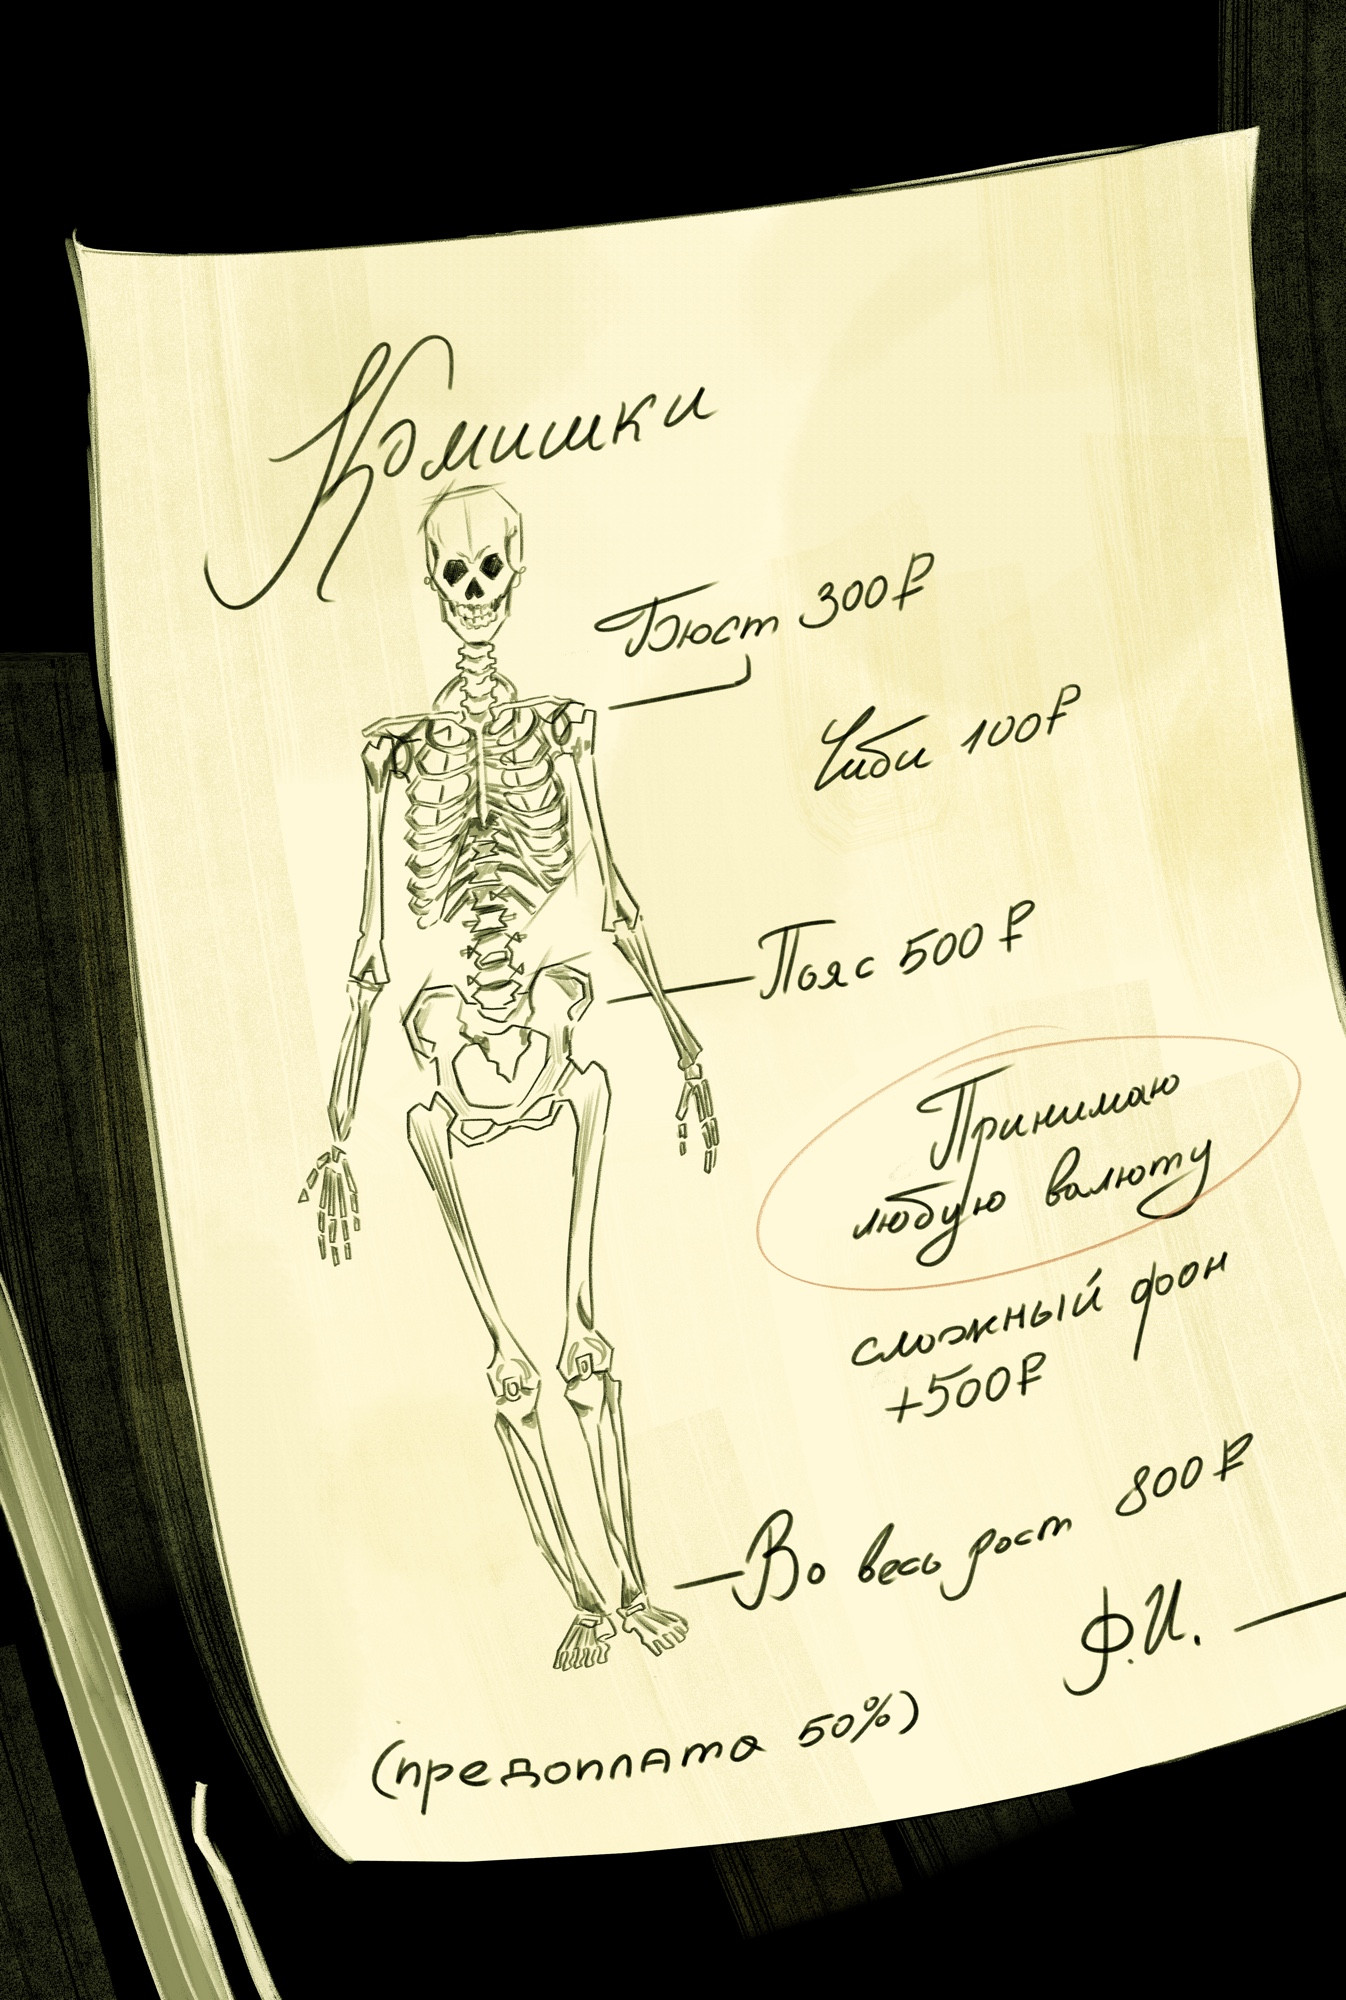 Комишки
Бюст 300₽
Чиби 100₽
Пояс 500₽
Принимаю
любую валюту
сложный фон
+500₽
Во весь рост 800₽
Ф.И.
(предоплата 50%)